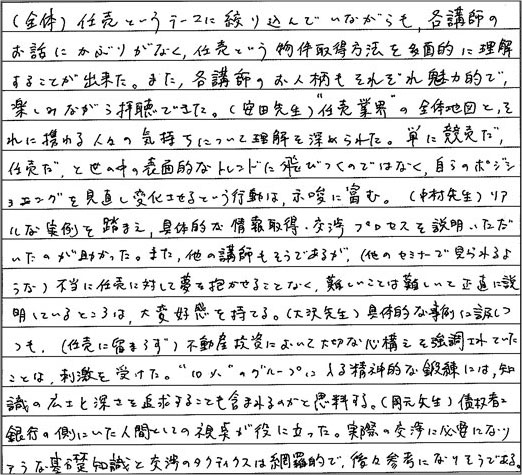 (全体) 任売というテーマに絞り込んでいながらも、各講師の
お話にかぶりがなく、任売という物件取得方法を多面的に理解
することが出来た。また、各講師のお人柄もそれぞれ魅力的で、
楽しみながら拝聴できた。(安田先生)"任売業界"の全体地図と、そ
れに携わる人々の気持ちについて理解を深められた。単に競売だ、
任売だ、と世の中の表面的なトレンドに飛びつくのではなく、自らのポジシ
ョニングを見直し変化させるという行動は、示唆に富む。(中村先生)リア
ルな実例を踏まえ、具体的な情報取得・交渉プロセスを説明いただ
いたのが助かった。また、他の講師もそうであるが、(他のセミナーで見られるよ
うな)不当に任売に対して夢を抱かせることなく、難しいことは難しいと正直に説
明しているところは、大変好感を持てる。(大沢先生)具体的な事例に訳しつ
つも、(任売に留まらず)不動産投資において大切な心構えを強調されていた
ことは、刺激を受けた。"10%"のグループに入る精神的な鍛練には、知
識の広さと深さを追求することも含まれるのかと思料する。(岡元先生)債権者=
銀行の側にいた人間としての視点が役に立った。実際の交渉に必要になり
そうな基礎知識と交渉のタクティクスは網羅的で、後々参考になりそうである